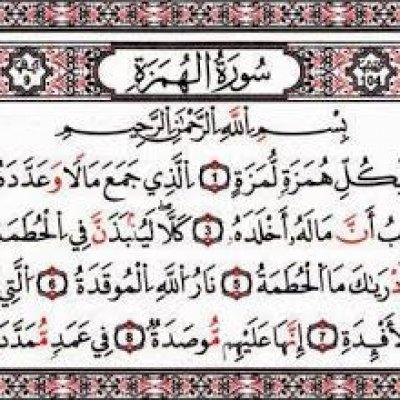 سُورَةُ الْهُمَزَةِ
بِسْمِ اللَّهِ الرَّحْمَٰنِ الرَّحِيمِ
لِّكُلِّ هُمَزَةٍ لُّمَزَةٍ ١ الَّذِي جَمَعَ مَالًا وَعَدَّدَهُ
أَنَّ مَالَهُ أَخْلَدَهُ ٣ كَلَّا لَيُنبَذَنَّ فِي الْحُطَمَةِ
مَا الْحُطَمَةُ ٥ نَارُ اللَّهِ الْمُوقَدَةُ ٦ الَّتِي
٧ إِنَّهَا عَلَيْهِم مُّؤْصَدَةٌ ٨ فِي عَمَدٍ مُّمَدَّدَ